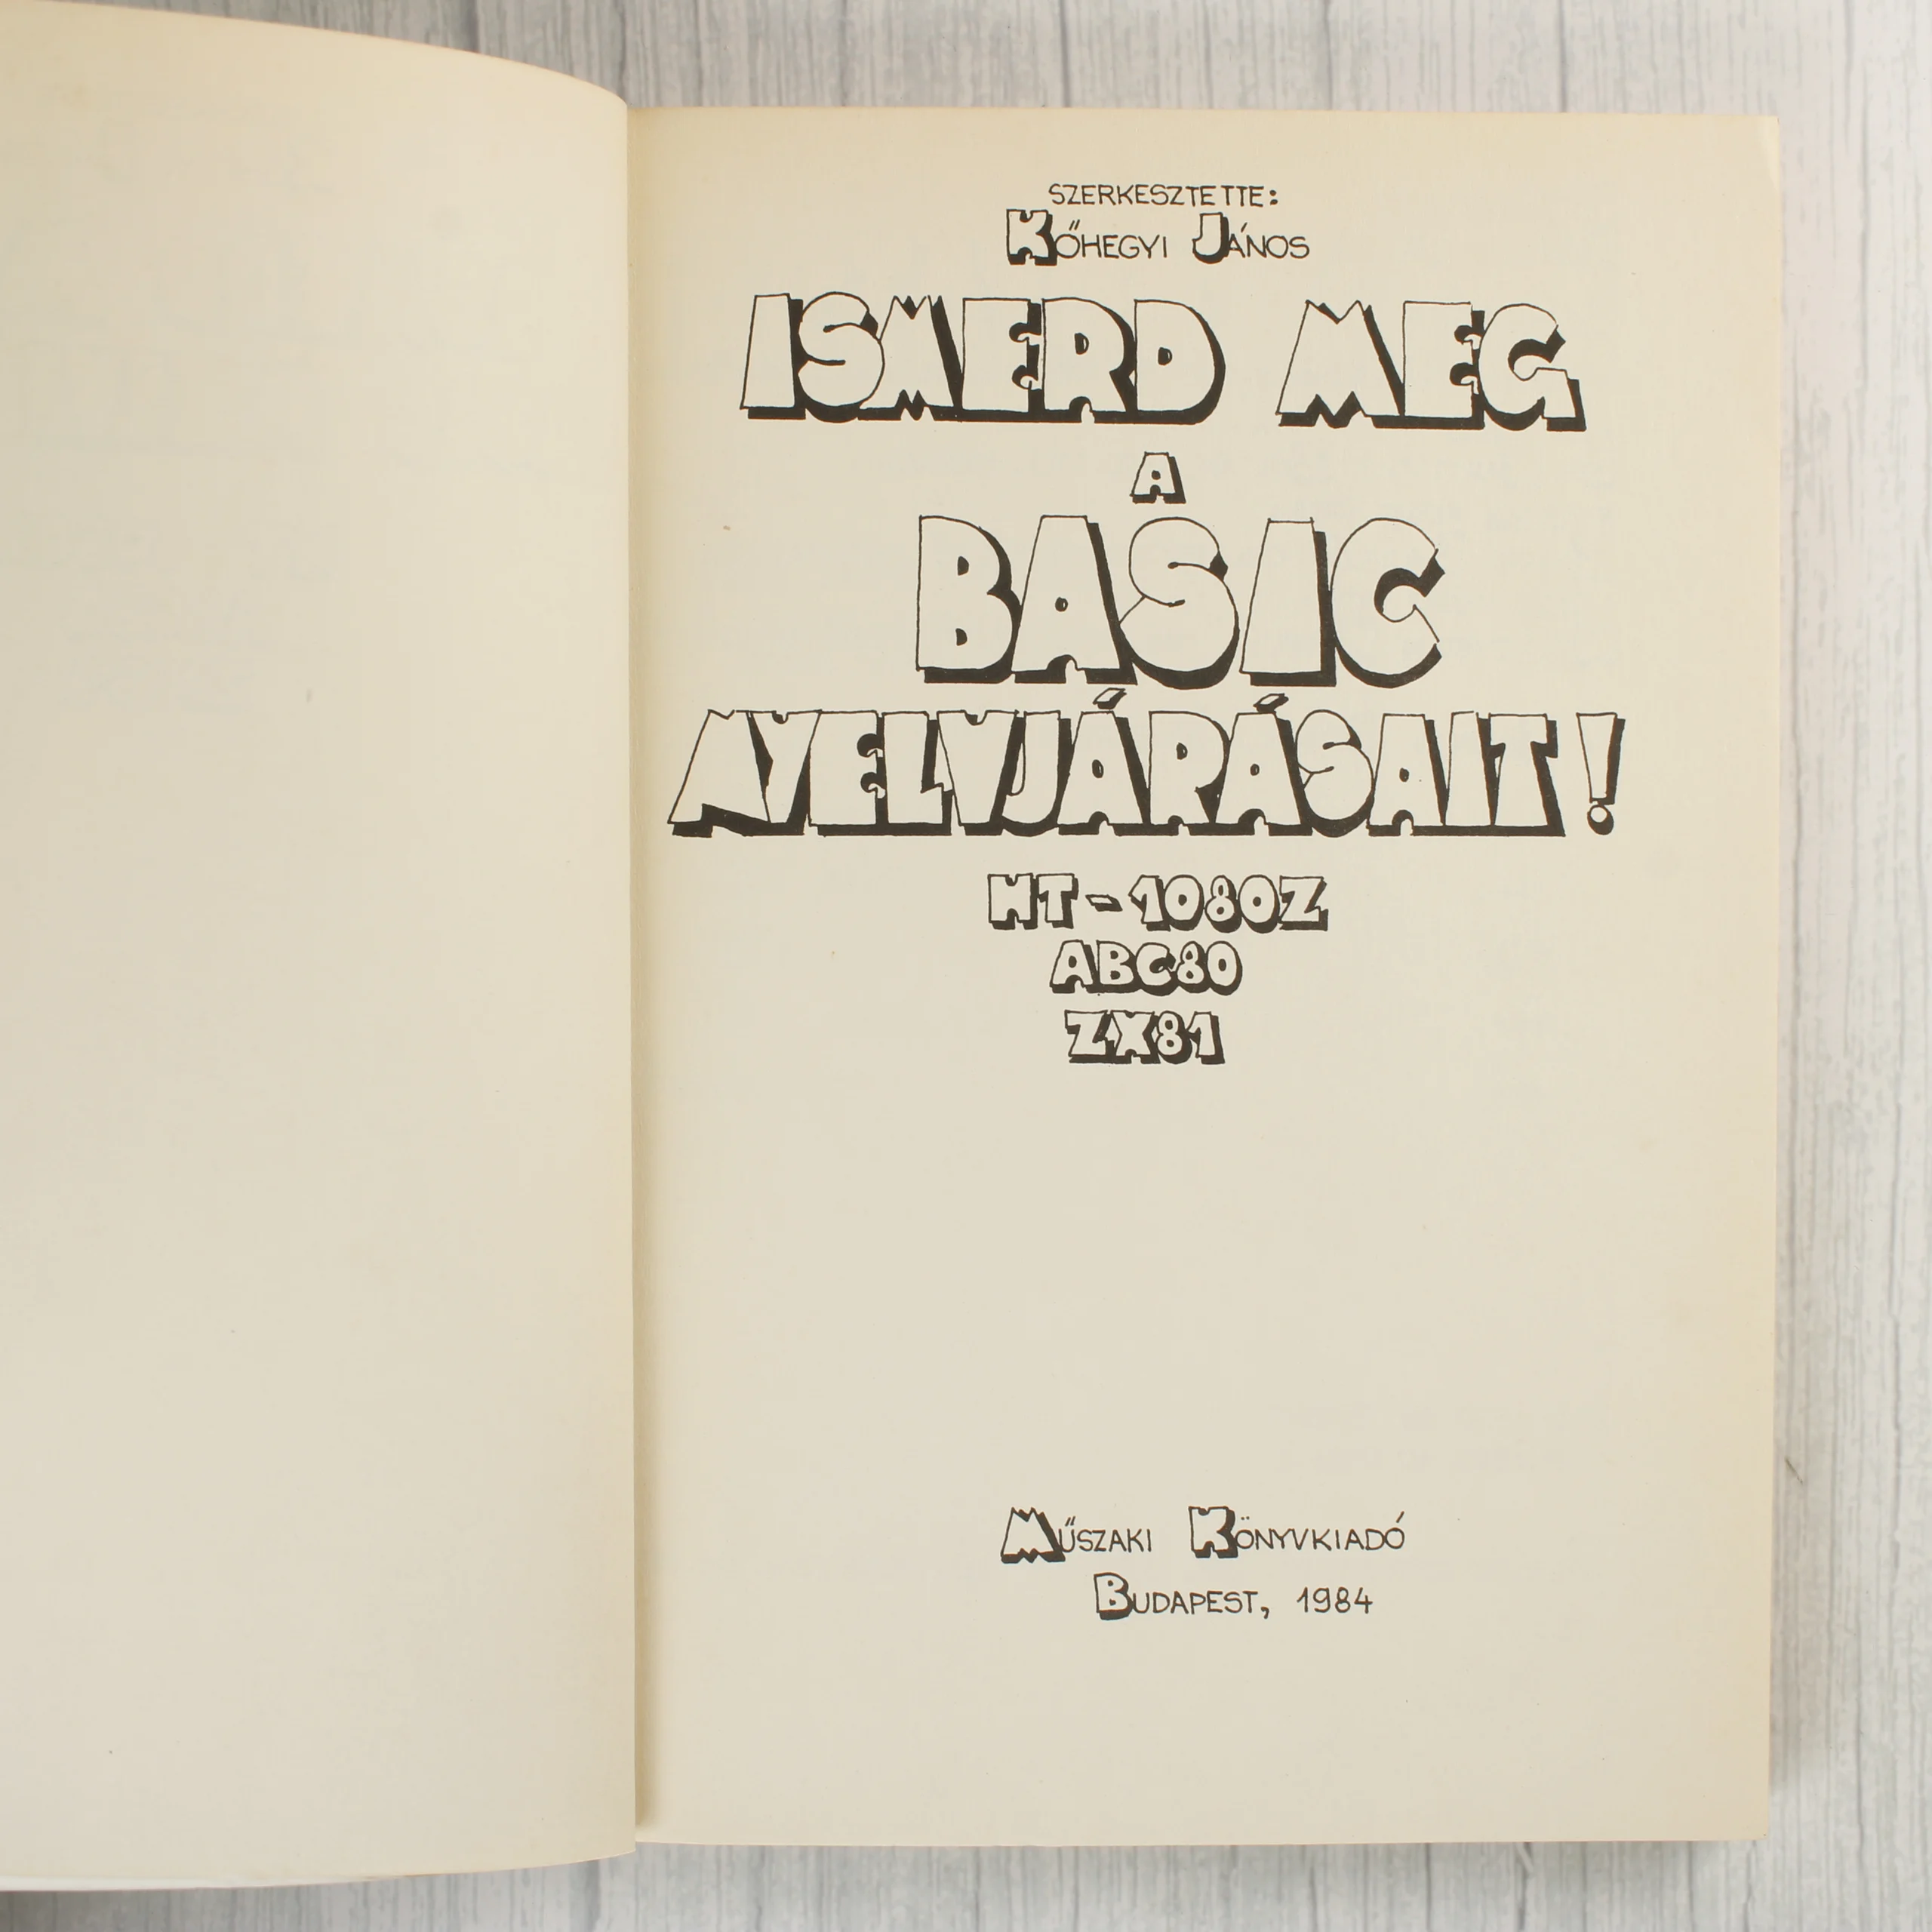 SZERKESZTETTE:
KŐHEGYI JÁNOS
ISMERD MEG
A
BASIC
NYELVJÁRÁSAIT!
HT-1080Z
ABC80
ZX81
MŰSZAKI KÖNYVKIADÓ
BUDAPEST, 1984